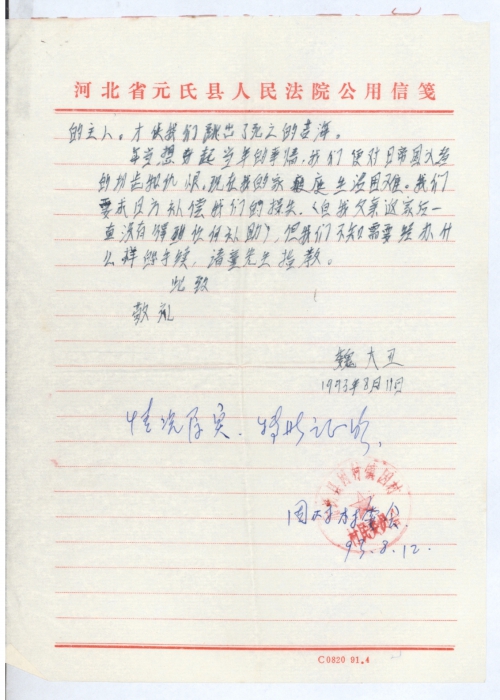 河北省元氏县人民法院公用信笺
的主人。才使我们跳出了死亡的苦海。
每当想起当年的事情，我们便对日帝国主义
的切齿仇恨，现在我的家庭生活困难。我们
要求日方补偿我们的损失。（自我父亲返家后一
直没有得到任何补助），但我们不知需要经办什
么样的手续，请童先生指教。
此致
敬礼
魏大丑
1993年8月11日
情况属实，特此证明。
固村村委会
93.8.12.
C0820 91.4